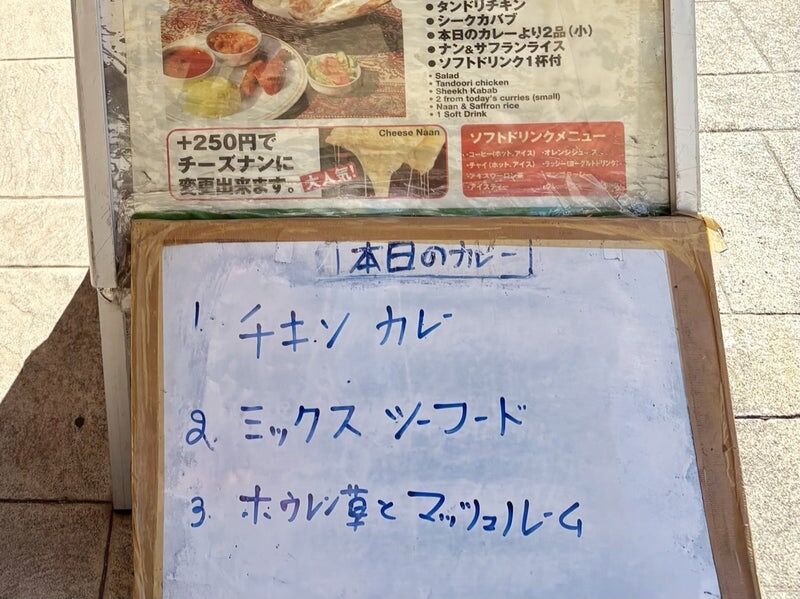 ● タンドリチキン
● シークカバブ
● 本日のカレーより2品(小)
● ナン&サフランライス
● ソフトドリンク1杯付
• Salad
• Tandoori chicken
• Sheekh Kabab
• 2 from today's curries (small)
• Naan & Saffron rice
• 1 Soft Drink
+250円で
チーズナンに
変更出来ます。
大人気!
Cheese Naan
ソフトドリンクメニュー
・コーヒー(ホット、アイス)
・オレンジジュース
・チャイ(ホット、アイス)
・ラッシー(ヨーグルトドリンク)
・アイスウーロン茶
・アイスティー
本日のカレー
1. チキン カレー
2. ミックス ツーフード
3. ホウレン草と マッツュルーム